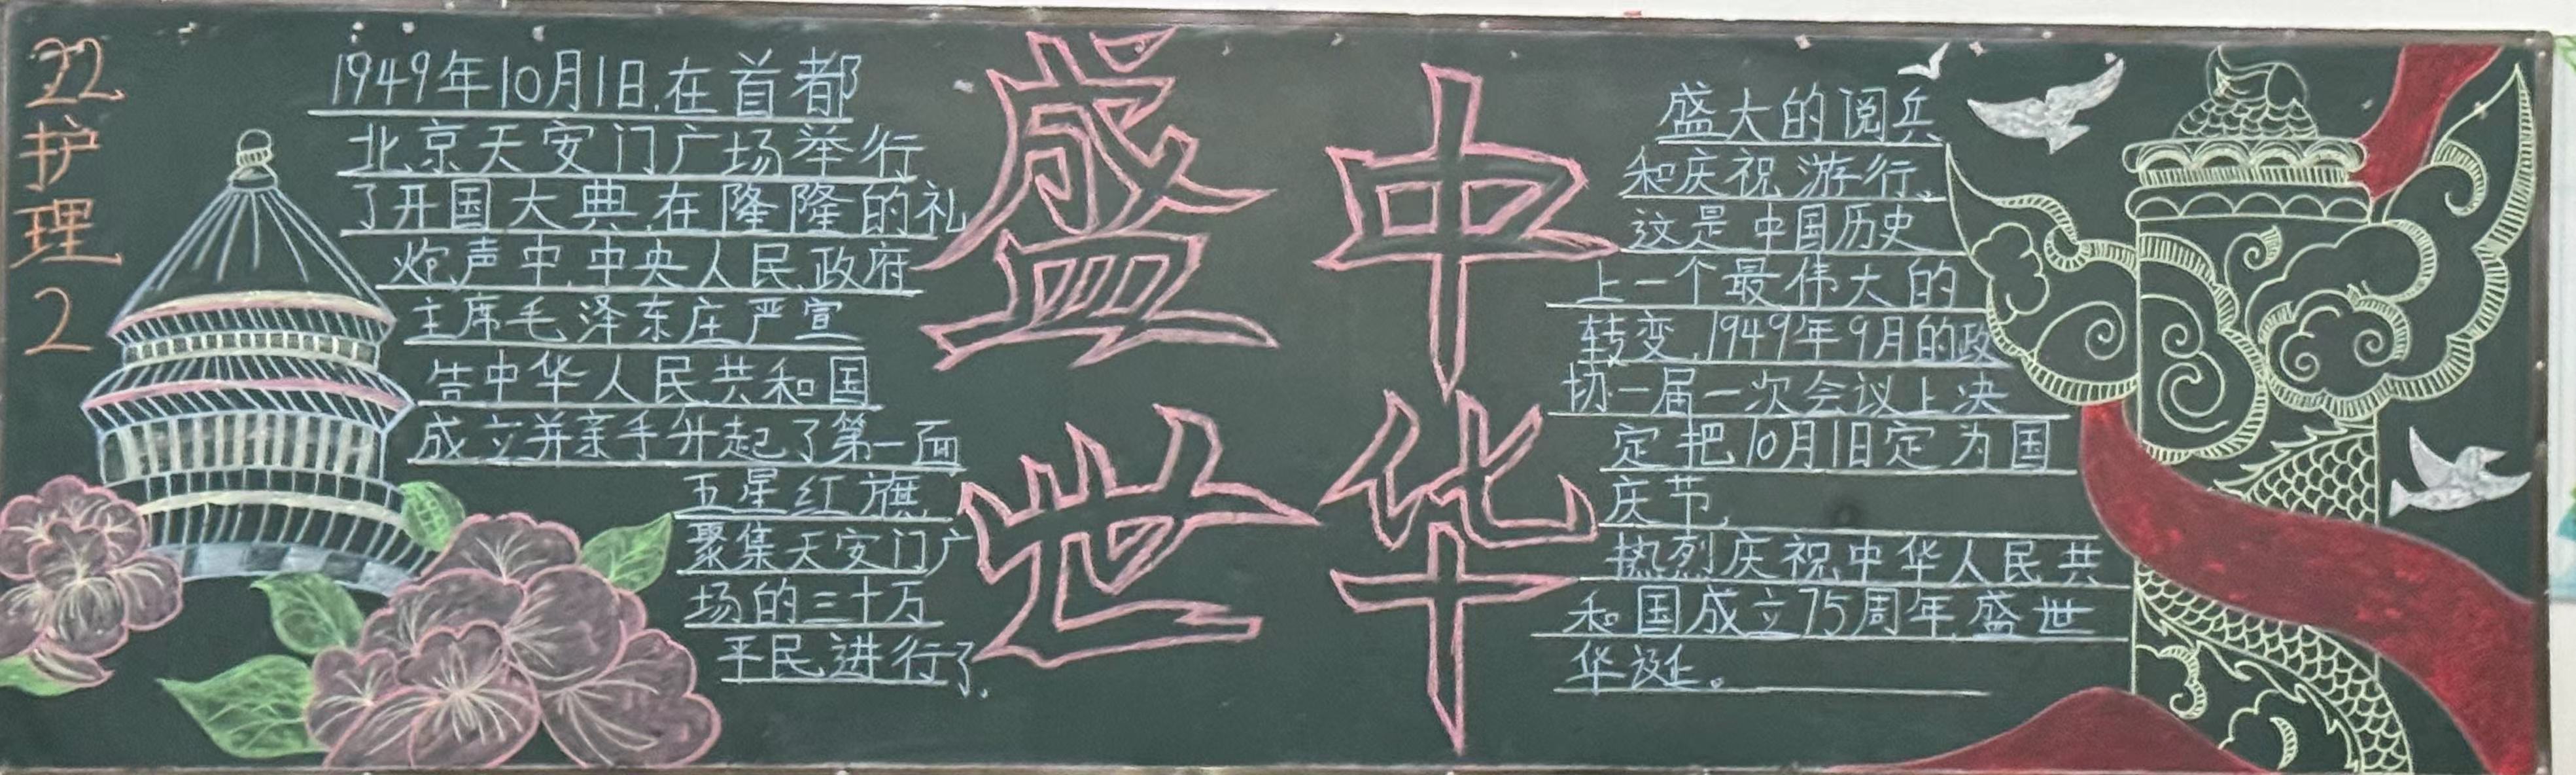 22护理2
1949年10月1日,在首都
北京天安门广场举行
了开国大典,在隆隆的礼
炮声中,中央人民政府
主席毛泽东庄严宣
告中华人民共和国
成立并亲手升起了第一面
五星红旗
聚集天安门广
场的三十万
平民进行了,
盛世
中华
盛大的阅兵
和庆祝游行、
这是中国历史
上一个最伟大的
转变,1949年9月的政
协一届一次会议上决
定把10月1日定为国
庆节,
热烈庆祝中华人民共
和国成立75周年,盛世
华诞。